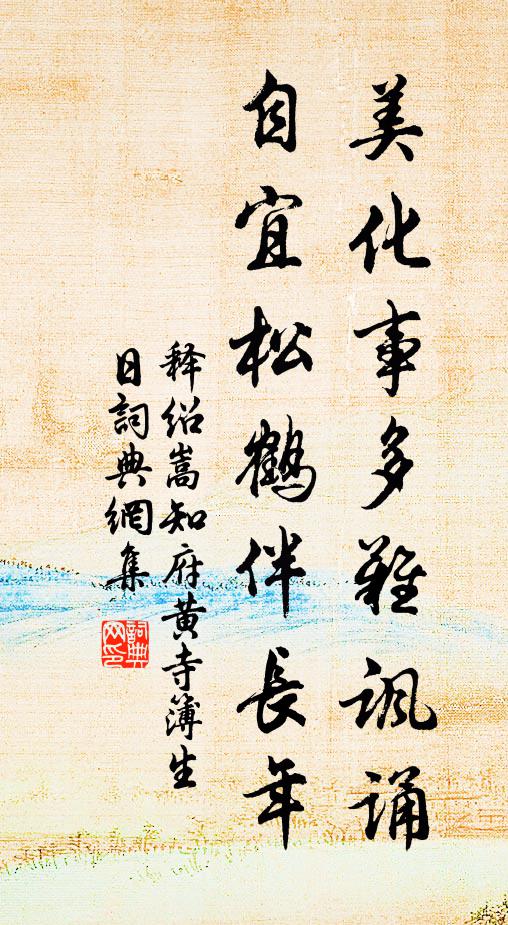 美化事多難諷誦
自宜松鶴伴長年
释绍嵩知府黄寺簿生
日詞典網集
詞典網印